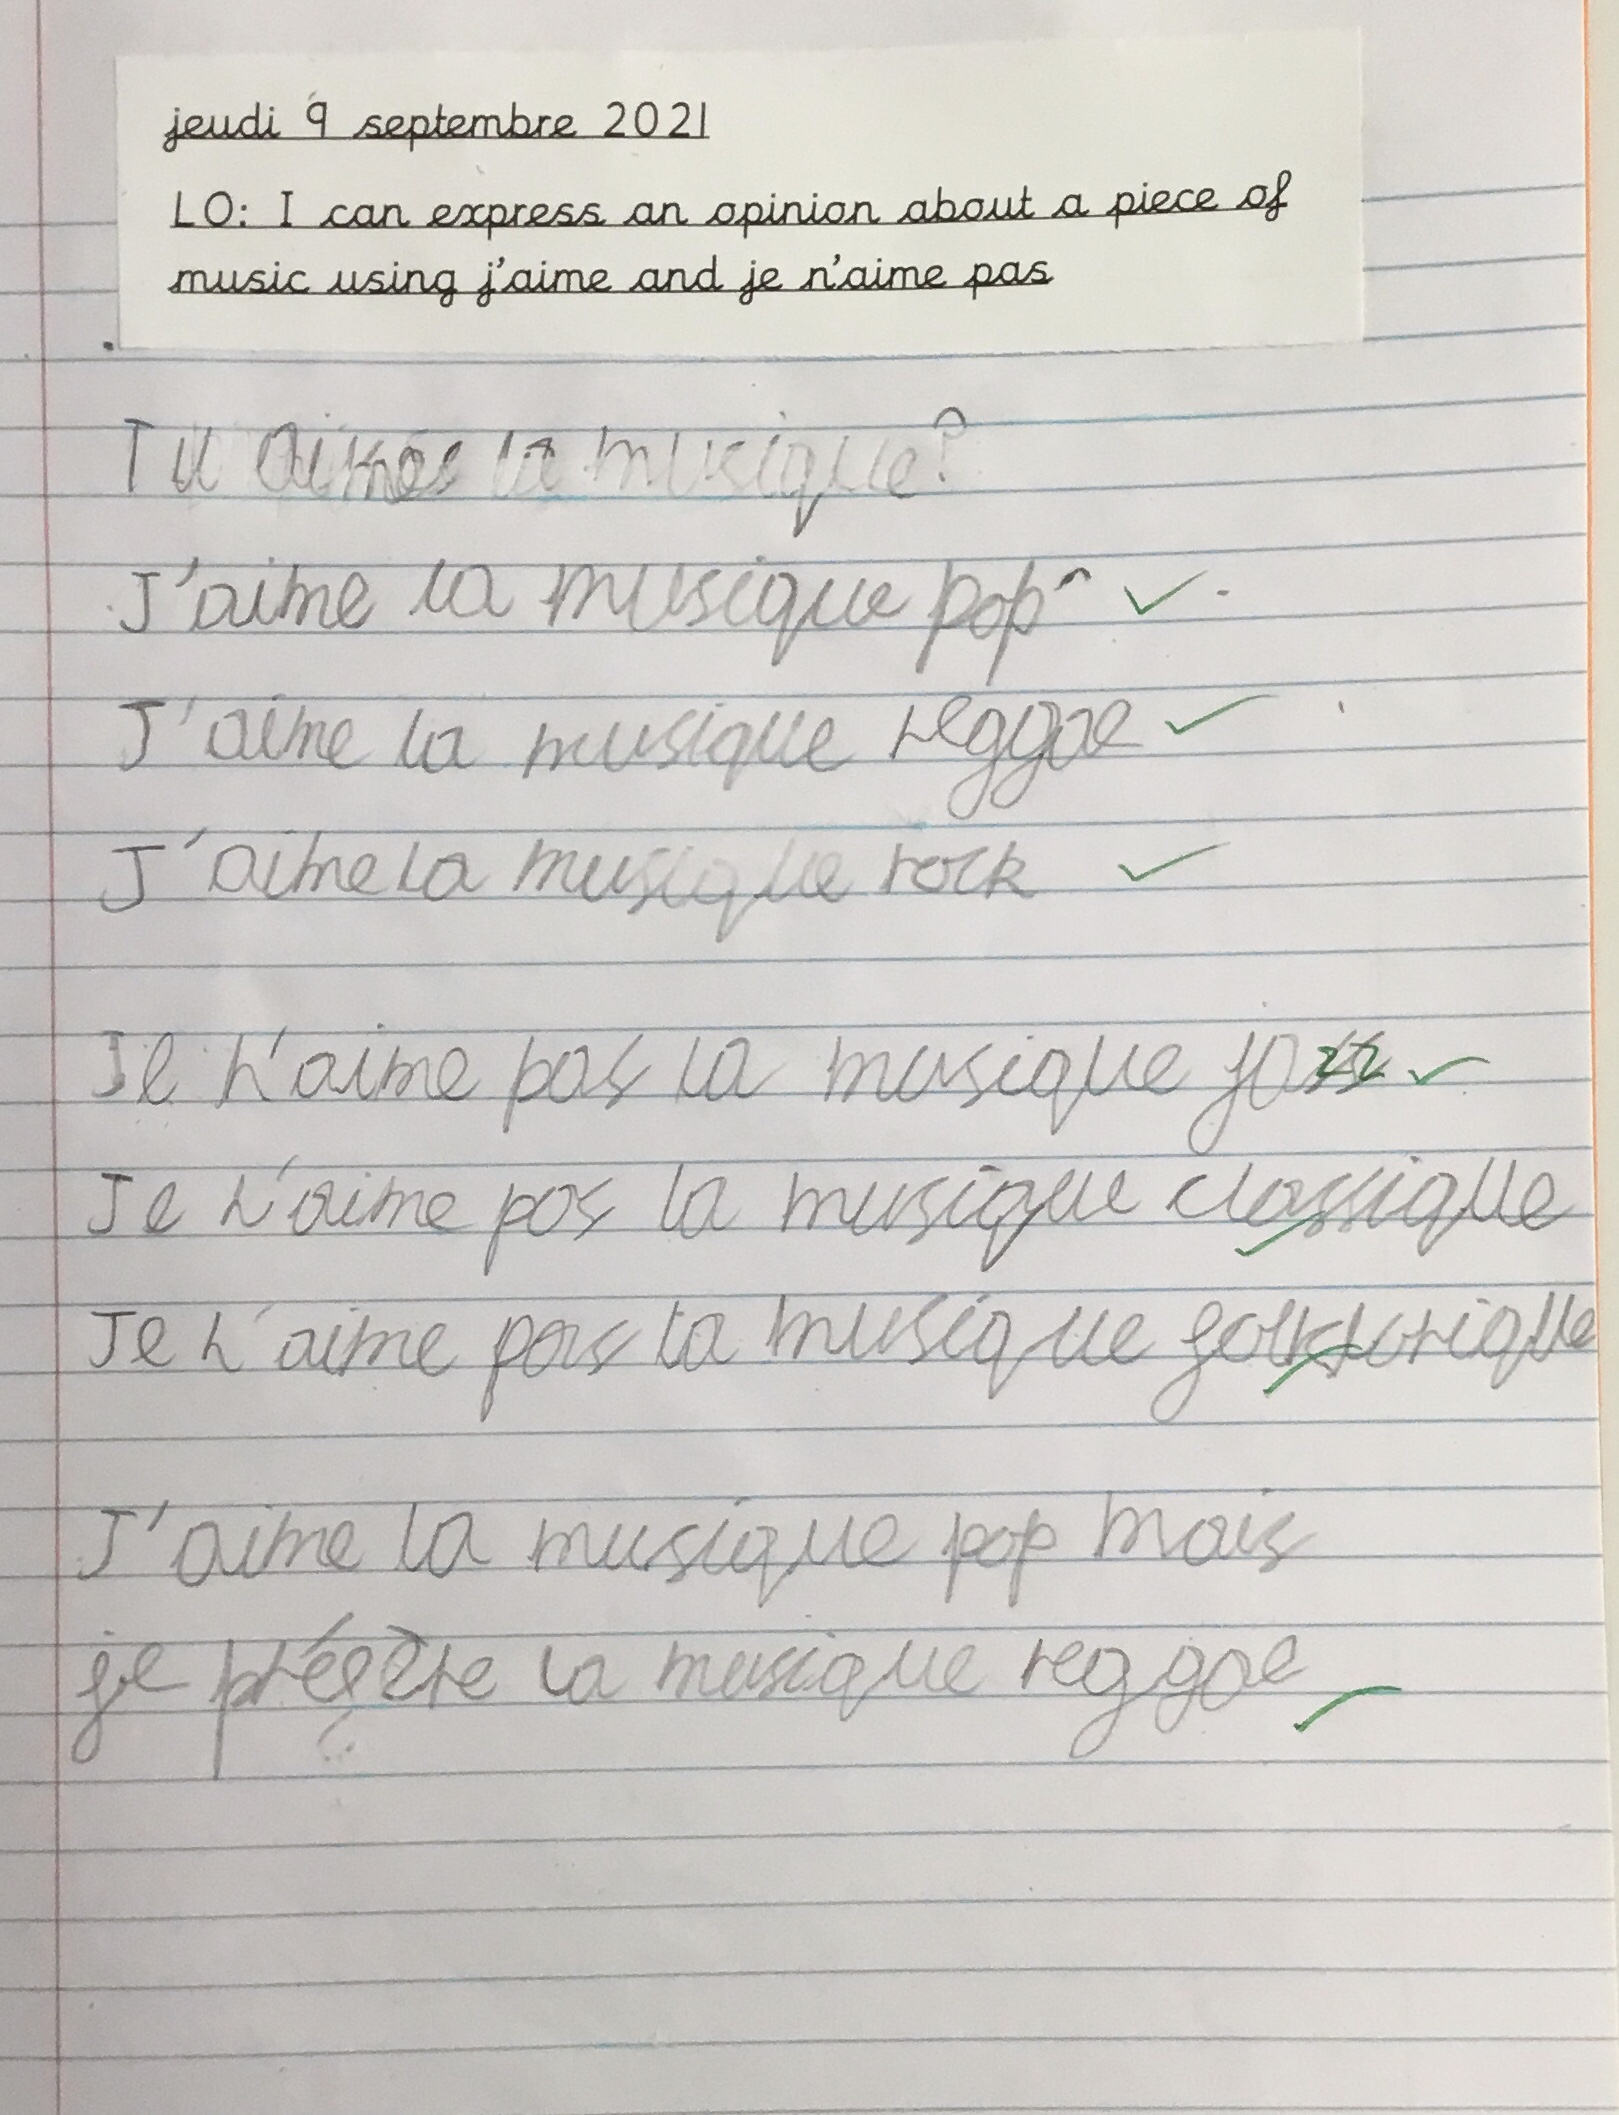 jeudi 9 septembre 2021
LO: I can express an opinion about a piece of
music using j'aime and je n'aime pas
Tu aimes la musique?
J'aime la musique pop
J'aime la musique reggae
J'aime la musique rock
Je n'aime pas la musique jazz
Je n'aime pas la musique classique
Je n'aime pas la musique folklorique
J'aime la musique pop mais
je préfère la musique reggae